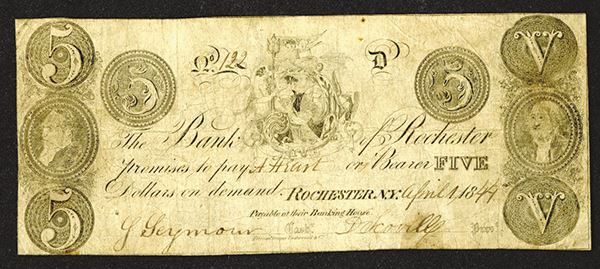 5 V
5 No 122 D 5
The Bank of Rochester
Promises to pay A Hunt or Bearer FIVE
Dollars on demand. ROCHESTER N.Y. April 1, 1844
Payable at their Banking House.
5 G Seymour Cash. Scovill Pres. V